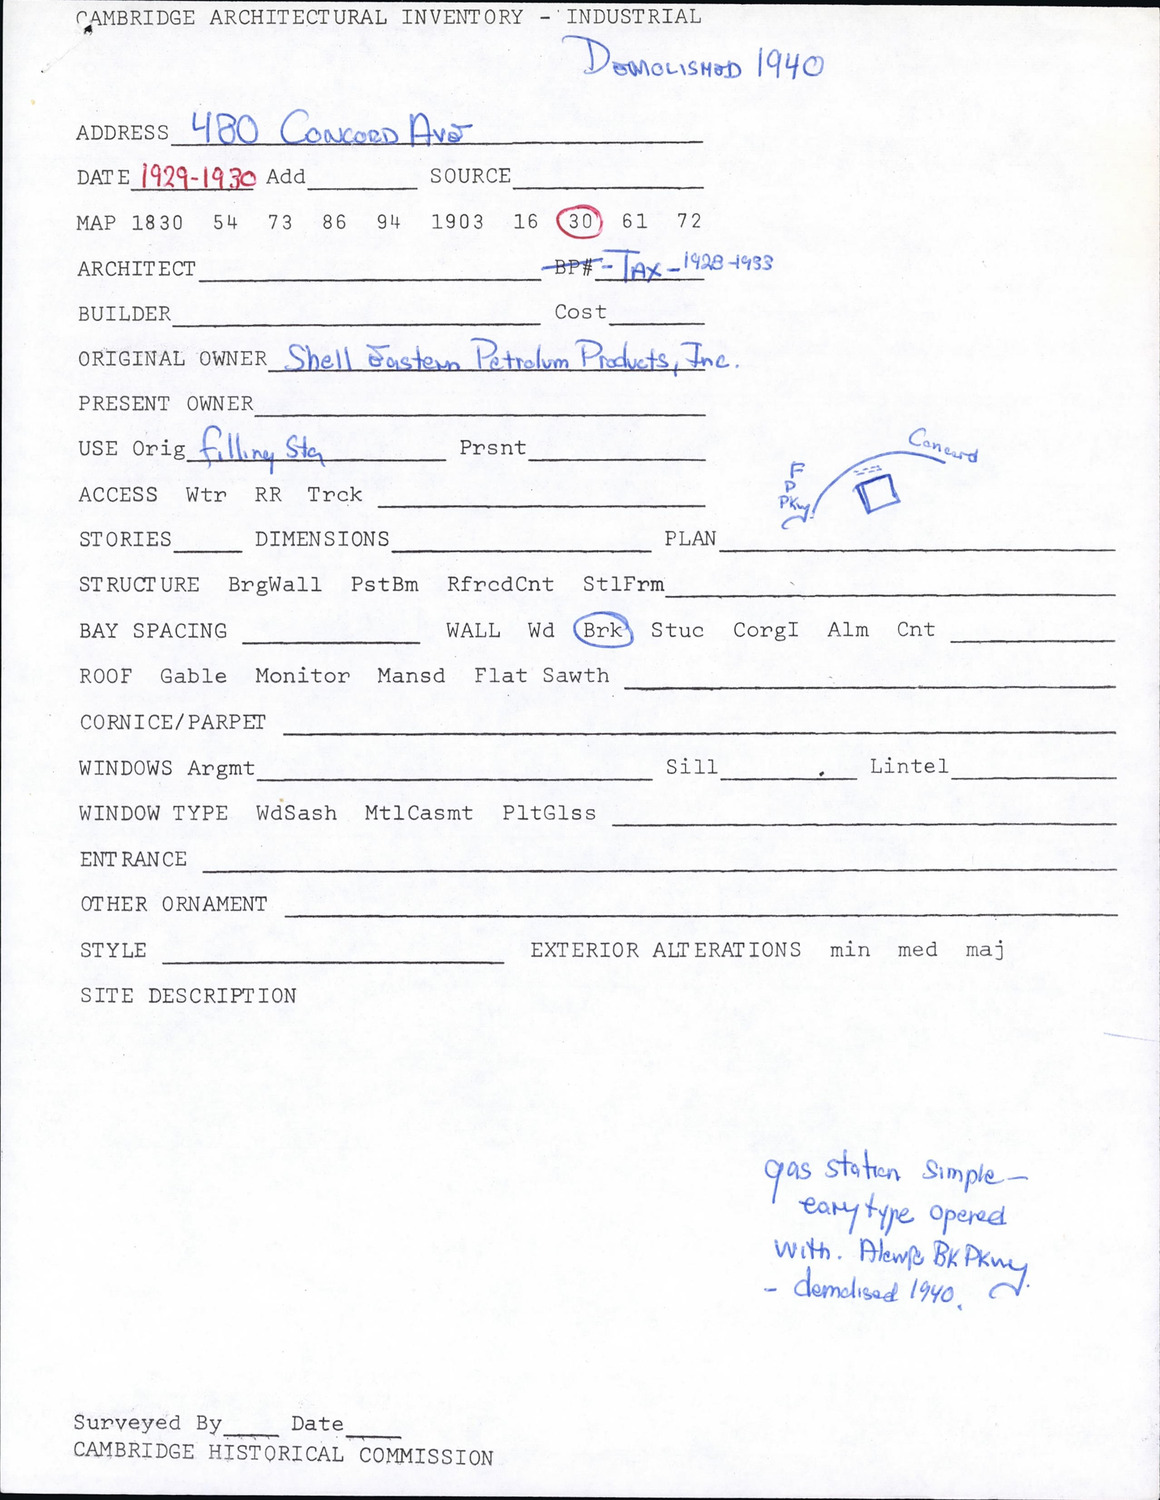 CAMBRIDGE ARCHITECTURAL INVENTORY - INDUSTRIAL
DEMOLISHED 1940
ADDRESS 480 CONCORD AVE
DATE 1929-1930 Add SOURCE
MAP 1830 54 73 86 94 1903 16 30 61 72
ARCHITECT BP# - TAX - 1928-1933
BUILDER Cost
ORIGINAL OWNER Shell Eastern Petrolum Products, Inc.
PRESENT OWNER
USE Orig filling Sta Prsnt
Concord
F
P
PKwy
ACCESS Wtr RR Trck
STORIES DIMENSIONS PLAN
STRUCTURE BrgWall PstBm RfrcdCnt StlFrm
BAY SPACING WALL Wd Brk Stuc CorgI Alm Cnt
ROOF Gable Monitor Mansd Flat Sawth
CORNICE/PARPET
WINDOWS Argmt Sill Lintel
WINDOW TYPE WdSash MtlCasmt PltGlss
ENTRANCE
OTHER ORNAMENT
STYLE EXTERIOR ALTERATIONS min med maj
SITE DESCRIPTION
gas station simple -
eary type opered
with. Alewfe BK PKwy
- demolised 1940.
Surveyed By Date
CAMBRIDGE HISTORICAL COMMISSION